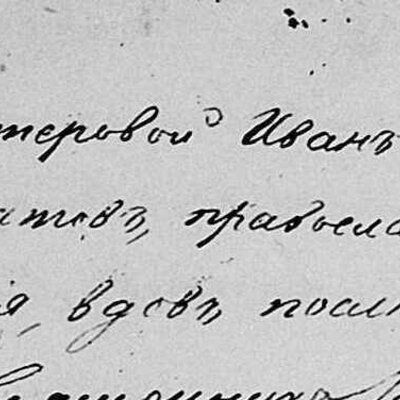 теровой Иванъ
атовъ, правосла
я, вдовъ, посл